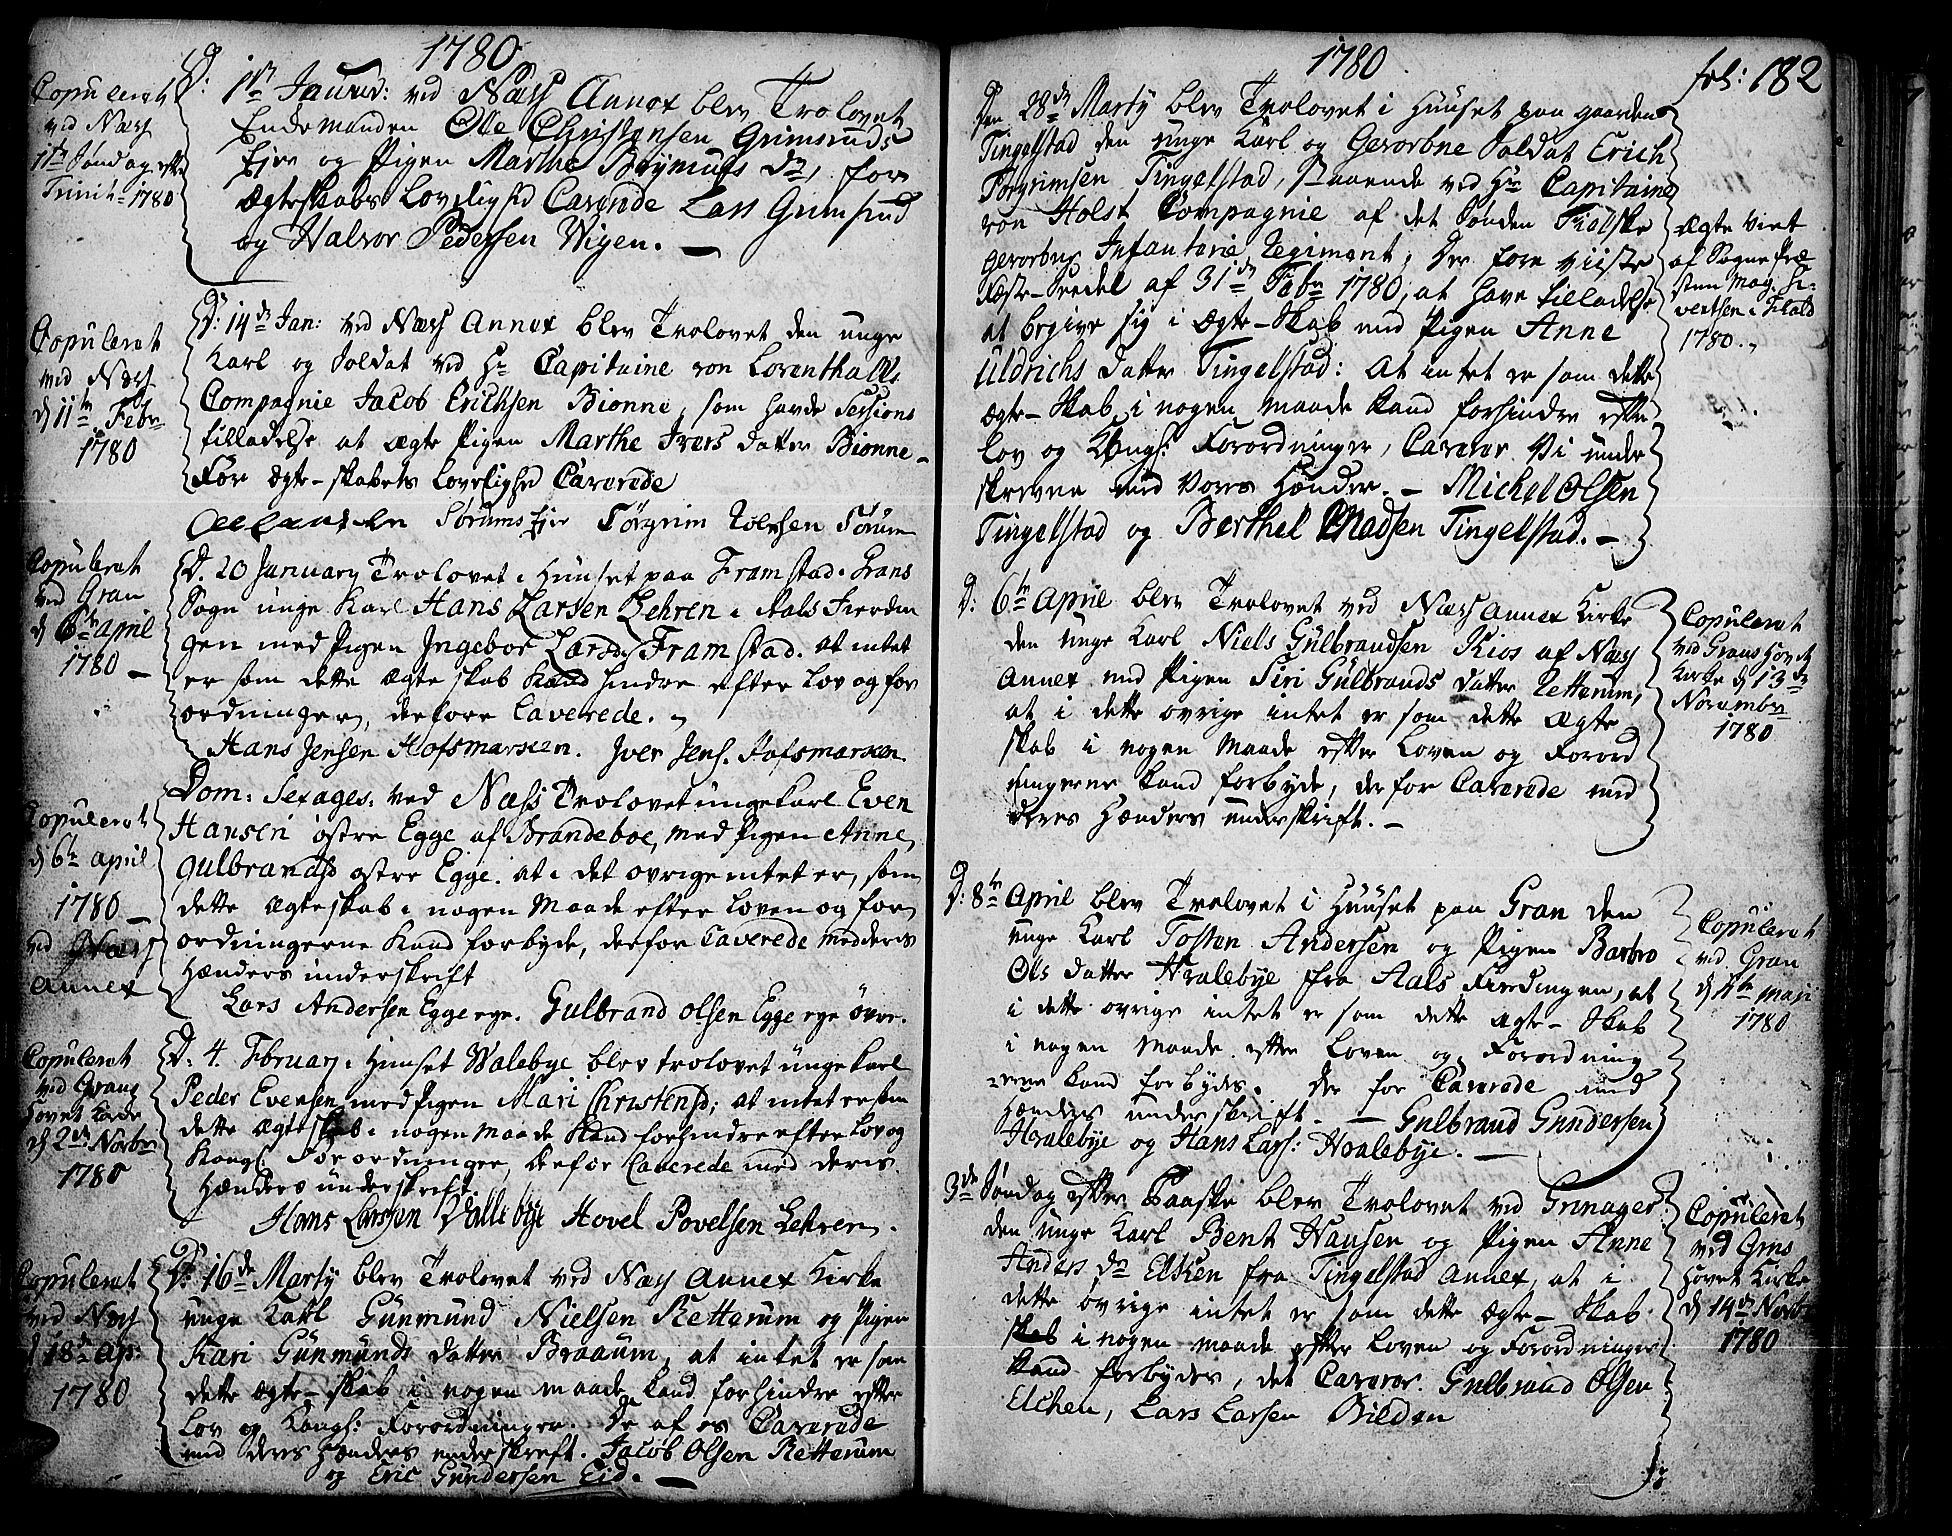 1780
Copuleret
vid Næss
1ste Søndag efter
Trinit: 1780
D: 1ste Januar: vid Næss Annex blev Trolovet
Enkemanden Ole Christensen Grimsruds
Ejer og Pigen Marthe Brynnils Dr, for
Ægteskabs Lovlighed Caverede Lars Grimsrud
og Halvor Pedersen Wigen. —
Copuleret
vid Næss
d 11te Febr
1780
D: 14de Jan: vid Næss Annex blev Trolovet den unge
Karl og Soldat vid Hr Capitaine von Lowenthalls
Compagnie Jacob Erichsen Bionne, som havde Sessions
tilladelse at ægte Pigen Marthe Ivers datter Bionne –
For ægte-skabets Lovlighed Caverede
Sørums Ejer Torgrim Sørum
Copuleret
vid Gran
d 6te April
1780 –
D. 20 January Trolovet i Huuset paa Framstad i Grans
Sogn unge Karl Hans Larsen Lehren i Aals Fierdin
gen med Pigen Ingebor Larsd. Framstad. at intet
er som dette Ægteskab kand hindre efter Lov og for
ordninger, derfore Caverede. –
Hans Jensen Hofsmarken. Iver Jens. Hofsmarken.
Copuleret
d 6te April
1780 –
vid Næss
Annex
Dom: Sexages: ved Næss Trolovet unge karl Even
Hansen østre Egge af Brandeboe, med Pigen Anne
Gulbrandsd østre Egge. at i det øvrige intet er, som
dette ægteskab i nogen Maade efter Loven og for
ordningerne kand forbyde, derfor Caverede med deres
Hænders underskrift
Lars Andersen Egge ege. Gulbrand Olsen Egge ege øvre.
Copuleret
vid Grans
Hovet Kirke
d 2de Novbr
1780
D: 4. February i Huuset Walebye blev trolovet unge karl
Peder Evensen med Pigen Mari Christensd; at intet er som
dette ægteskab i nogen Maade kand forhindre efter Lov og
Kongl: Forordninger, derfor Caverede med deres
Hænders underskrift.
Hans Larsen Vallebye Hovel Povelsen Lehren.
Copuleret
vid Næss
d 18de Ap:
1780
D: 16de Martij blev Trolovet ved Næss Annex Kirke
unge Karl Gunmund Nielsen Retterum og Pigen
Kari Gunmunds datter Braaum, at intet er som
dette ægte-skab i nogen maade kand forhindre efter
Lov og Kongl: Forordninger. De af os Caverede
med deres Hænders underskreft. Jacob Olsen Retterum
og Eric Gundersen Eid. —
1780
fol: 182
Den 28de Martij blev Trolovet i Huuset paa gaarden
Tingelstad den unge Karl og Gevorbne Soldat Erich
Torgrimsen Tingelstad, staaende ved Hr Capitaine
von Holst Compagnie af det Synden Fieldske
Gevorbne Infanterie Regiment, Der foreviiste
Feste-Sedel af 31de Febr 1780, at have tilladelse
at begive sig i Ægte-Skab med Pigen Anne
Uldrichs datter Tingelstad: At intet er som dette
ægte-Skab i nogen maade kand forhindre efter
Lov og Kongl: Forordninger, Caverer Vi under
skrevne med Vores Hænder. – Michel Olsen
Tingelstad og Berthel Madsen Tingelstad. –
Ægte Viet
af Sogne Præ
sten Mag: Si
vertsen i Field
1780. –
D: 6te April blev Trolovet ved Næss Annex Kirke
den unge Karl Niels Gulbrandsen Kios af Næss
Annex med Pigen Siri Gulbrands datter Retterum,
at i dette øvrige intet er som dette Ægte
skab i nogen Maade efter Loven og Forord
ningerne kand forbyde, derfor Caverede med
deres Hænders underskrift. –
Copuleret
ved Grans Hovet
Kirke d 13de
Novembr
1780
D: 8te April blev Trolovet i Huuset paa Gran den
unge Karl Tosten Andersen og Pigen Barbro
Ols datter Hvalebye fra Aals Fierdingen, at
i dette øvrige intet er som dette Ægte-Skab
i nogen Maade efter Loven og Forordning
erne kand forbydes. Der for Caverede med
Hænders underskrift. – Gulbrand Gundersen
Hvalebye og Hans Lars: Hvalebye. –
Copuleret
vid Gran
d 4te Maji
1780
3de Søndag efter Paaske blev Trolovet ved Grinager
den unge Karl Bent Hansen og Pigen Anne
Anders Dr Elken fra Tingelstad Annex, at i
dette øvrige intet er som dette Ægte-Skab
skab i nogen maade efter Loven og Forordninger
kand forbydes, det Caverer. Gulbrand Olsen
Elchen, Lars Larsen Bilden
Copuleret
ved Grns
Hovet Kirke
d 14de Novbr
1780